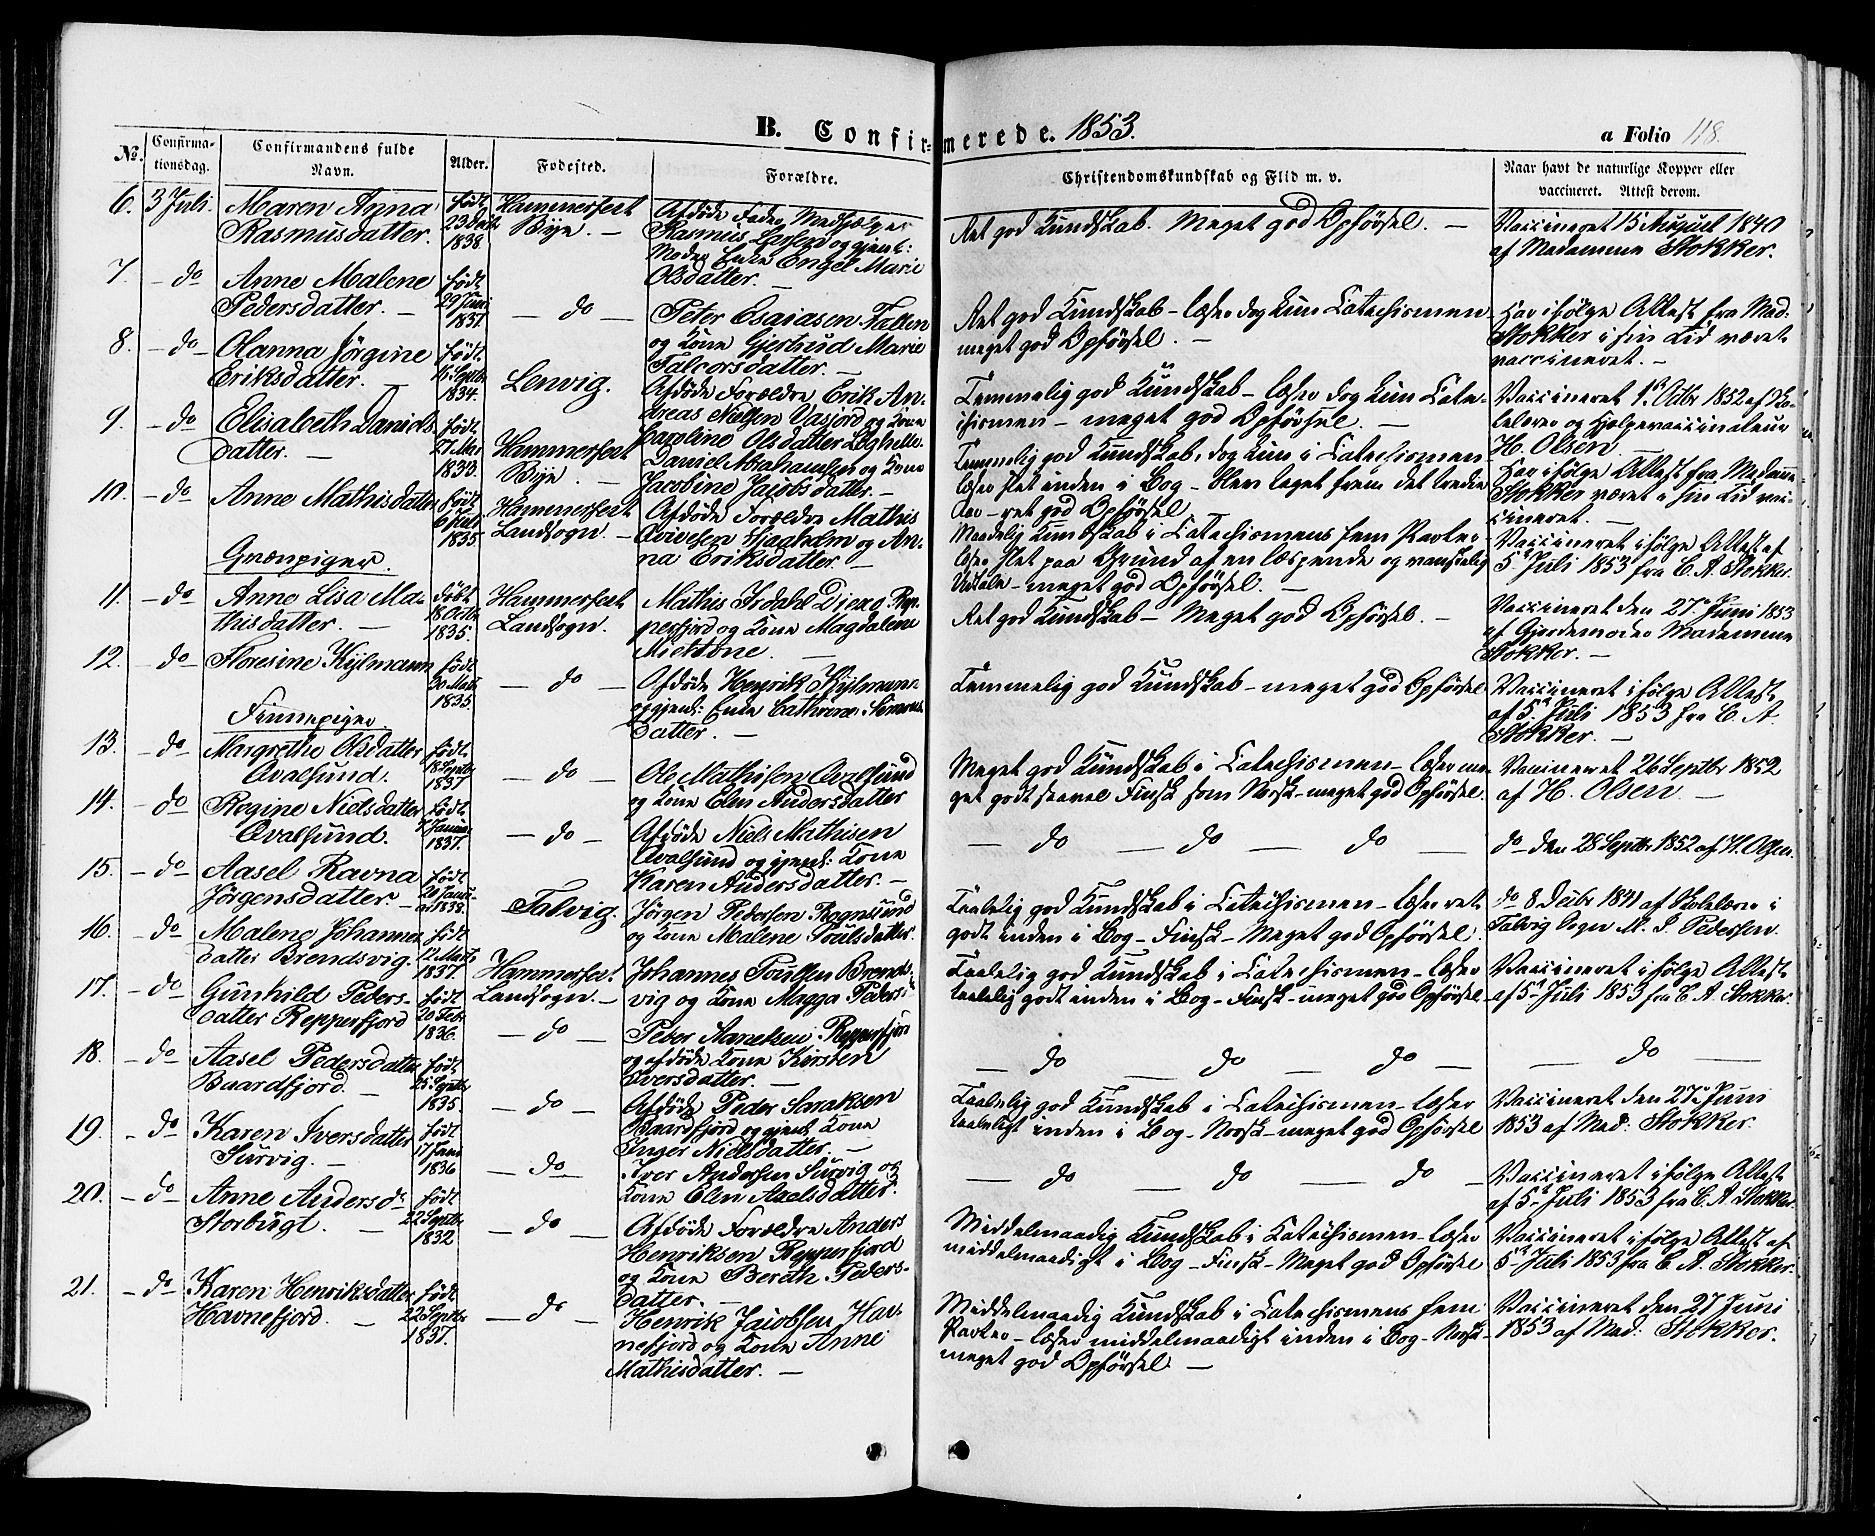 B. Confirmerede. 1853.
a Folio 118.
No.
Confirmationsdag.
Confirmandens fulde Navn.
Alder.
Fødested.
Forældre.
Christendomskundskab og Flid m. v.
Naar havt de naturlige Kopper eller vaccineret. Attest derom.
6. 3 Juli. Maren Anna
Rasmusdatter.
født 23 1838.
Hammerfest
Bye. —
Afdøde Fader
Rasmus Larsen og gjenl:
Moder Enke Engel Marie
Olsdatter. —
Ret god Kundskab. Meget god Opførsel. —
Vaccineret 15 August 1840
af Madamme Stokker.
7. — do Anne Malene
Pedersdatter. —
født 29 Juni 1837
— do —
Peter Esaiasen
og Kone Gjertrud Marie
Falcorsdatter. —
Ret god Kundskab — læser dog kun Catechismen
meget god Opførsel. —
Har ifølge Attest fra Mad:
Stokker i sin Tid været
vaccineret. —
8. — do — Olanna Jørgine
Eriksdatter. —
født 1834.
Lenvig.
Afdøde Forældre Erik An-
dreas Nilsen og Kone
Olsdatter
Temmelig god Kundskab — læser dog kun Cate-
chismen — meget god Opførsel. —
Vaccineret 1ste Octbr 1852 af Sko-
lelærer og Hjælpevaccinateur
H. Olsen
9. — do Elisabeth Daniels-
datter. —
født 1833.
Hammerfest
Bye. —
Daniel Abrahamsen og Kone
Jacobine Jacobsdatter. —
Temmelig god Kundskab, dog kun i Catechismen
læser slet inden i Bog — blev taget frem det tredie
Aar — ret god Opførsel
Har ifølge Attest fra Madamme
Stokker været i sin Tid vac-
cineret. —
10. — do Anne Mathisdatter
født 1835.
Hammerfest
Landsogn. —
Afdøde Forældre Mathis
og An-
na Eriksdatter. —
Maadelig Kundskab i Catechismens fem Parter
læser slet paa Grund af en læspende og vanskelig
Udtale — meget god Opførsel. —
Vaccineret ifølge Attest af
5te Juli 1853 fra C. A. Stokker.
11. — do — Anne Lisa Ma-
thisdatter. —
Døbt 18 Octbr 1835.
Hammerfest
Landsogn.
Mathis
og Kone Magdalene
Ret god Kundskab — Meget god Opførsel. —
Vaccineret den 27 Juni 1853
af Gjordemoder Madamme
Stokker. —
12. — do — Floresine Kylmann
født 1835.
— do —
Afdøde Henrik Kylmann
og gjenl: Enke Cathrine Simons-
datter. —
Temmelig god Kundskab — meget god Opførsel
Vaccineret ifølge Attest
af 5te Juli 1853 fra C. A.
Stokker. —
Finnepiger
13. — do — Margrethe Olsdatter
Qvalsund.
født 18 Septbr 1837
— do —
Ole Mathisen Qvalsund
og Kone Elen Andersdatter
Meget god Kundskab i Catechismen — læser me-
get godt saavel Finsk som Norsk — meget god Opførsel.
Vaccineret 26 Septbr 1852
af H. Olsen. —
14. — do Regine Nielsdatter
Qvalsund.
født 1837.
— do —
Afdøde Niels Mathisen
Qvalsund og gjenl: Kone
Karen Andersdatter. —
— do — do — do —
do den 28 Septbr 1852 af H. Olsen.
15. — do — Aasel Ravna
Jørgensdatter. —
født 20 Janu-
ar 1838.
Talvig.
Jørgen Pedersen Rognsund
og Kone Malene Poulsdatter.
Taalelig god Kundskab i Catechismen — læser ret
godt inden i Bog — Finsk — Meget god Opførsel.
do 8 Decbr 1841 af Skolelærer i
Talvig Sogn M. J. Pedersen.
16. — do Malene Johannes-
datter Brendsvig.
født 12 Marts 1837.
Hammerfest
Landsogn. —
Johannes Poulsen Brends-
vig og Kone Magga Peders-
Taalelig god Kundskab i Catechismen — læser
taalelig godt inden i Bog — Finsk — meget god Opførsel
Vaccineret ifølge Attest
af 5te Juli 1853 fra C. A. Stokker.
17. — do Gunhild Peders-
datter Repperfjord
født 20 Febr 1836.
— do —
Peder Repperfjord
og afdøde Kone Kirsten
Iversdatter. —
— do — do — do —
— do —
18. — do — Aasel Pedersdatter
Baardfjord. —
født 25 Septbr 1835.
— do —
Afdøde Peder Saraksen
Baardfjord og gjenl. Kone
Inger Nielsdatter. —
Taalelig god Kundskab i Catechismen — læser
taaleligt inden i Bog — Norsk — meget god Opførsel
Vaccineret den 27de Juni
1853 af Mad: Stokker.
19. — do Karen Iversdatter
Survig. —
født 17 1836
— do —
Iver Andersen Survig og
Kone Elen Axelsdatter.
— do — do — do —
Vaccineret ifølge Attest
af 5te Juli 1853 fra C. A. Stokker.
20. — do Anne Andersd.
Storbugt. —
født 22 Septbr 1832
— do —
Afdøde Forældre Anders
Henriksen Repperfjord
og Kone Bereth Peders-
datter. —
Middelmaadig Kundskab i Katechismen — læser
middelmaadigt i Bog — Finsk — Meget god Opførsel
Vaccineret ifølge Attest af
5te Juli 1853 fra C. A. Stokker.
21. — do Karen Henriksdatter
Havnefjord. —
født 22 Septbr 1837.
— do
Henrik Jacobsen Hav-
nefjord og Kone Anne
Mathisdatter. —
Middelmaadig Kundskab i Catechismens fem
Parter — læser middelmaadigt inden i Bog — Norsk —
meget god Opførsel. —
Vaccineret den 27 Juni
1853 af Mad: Stokker.